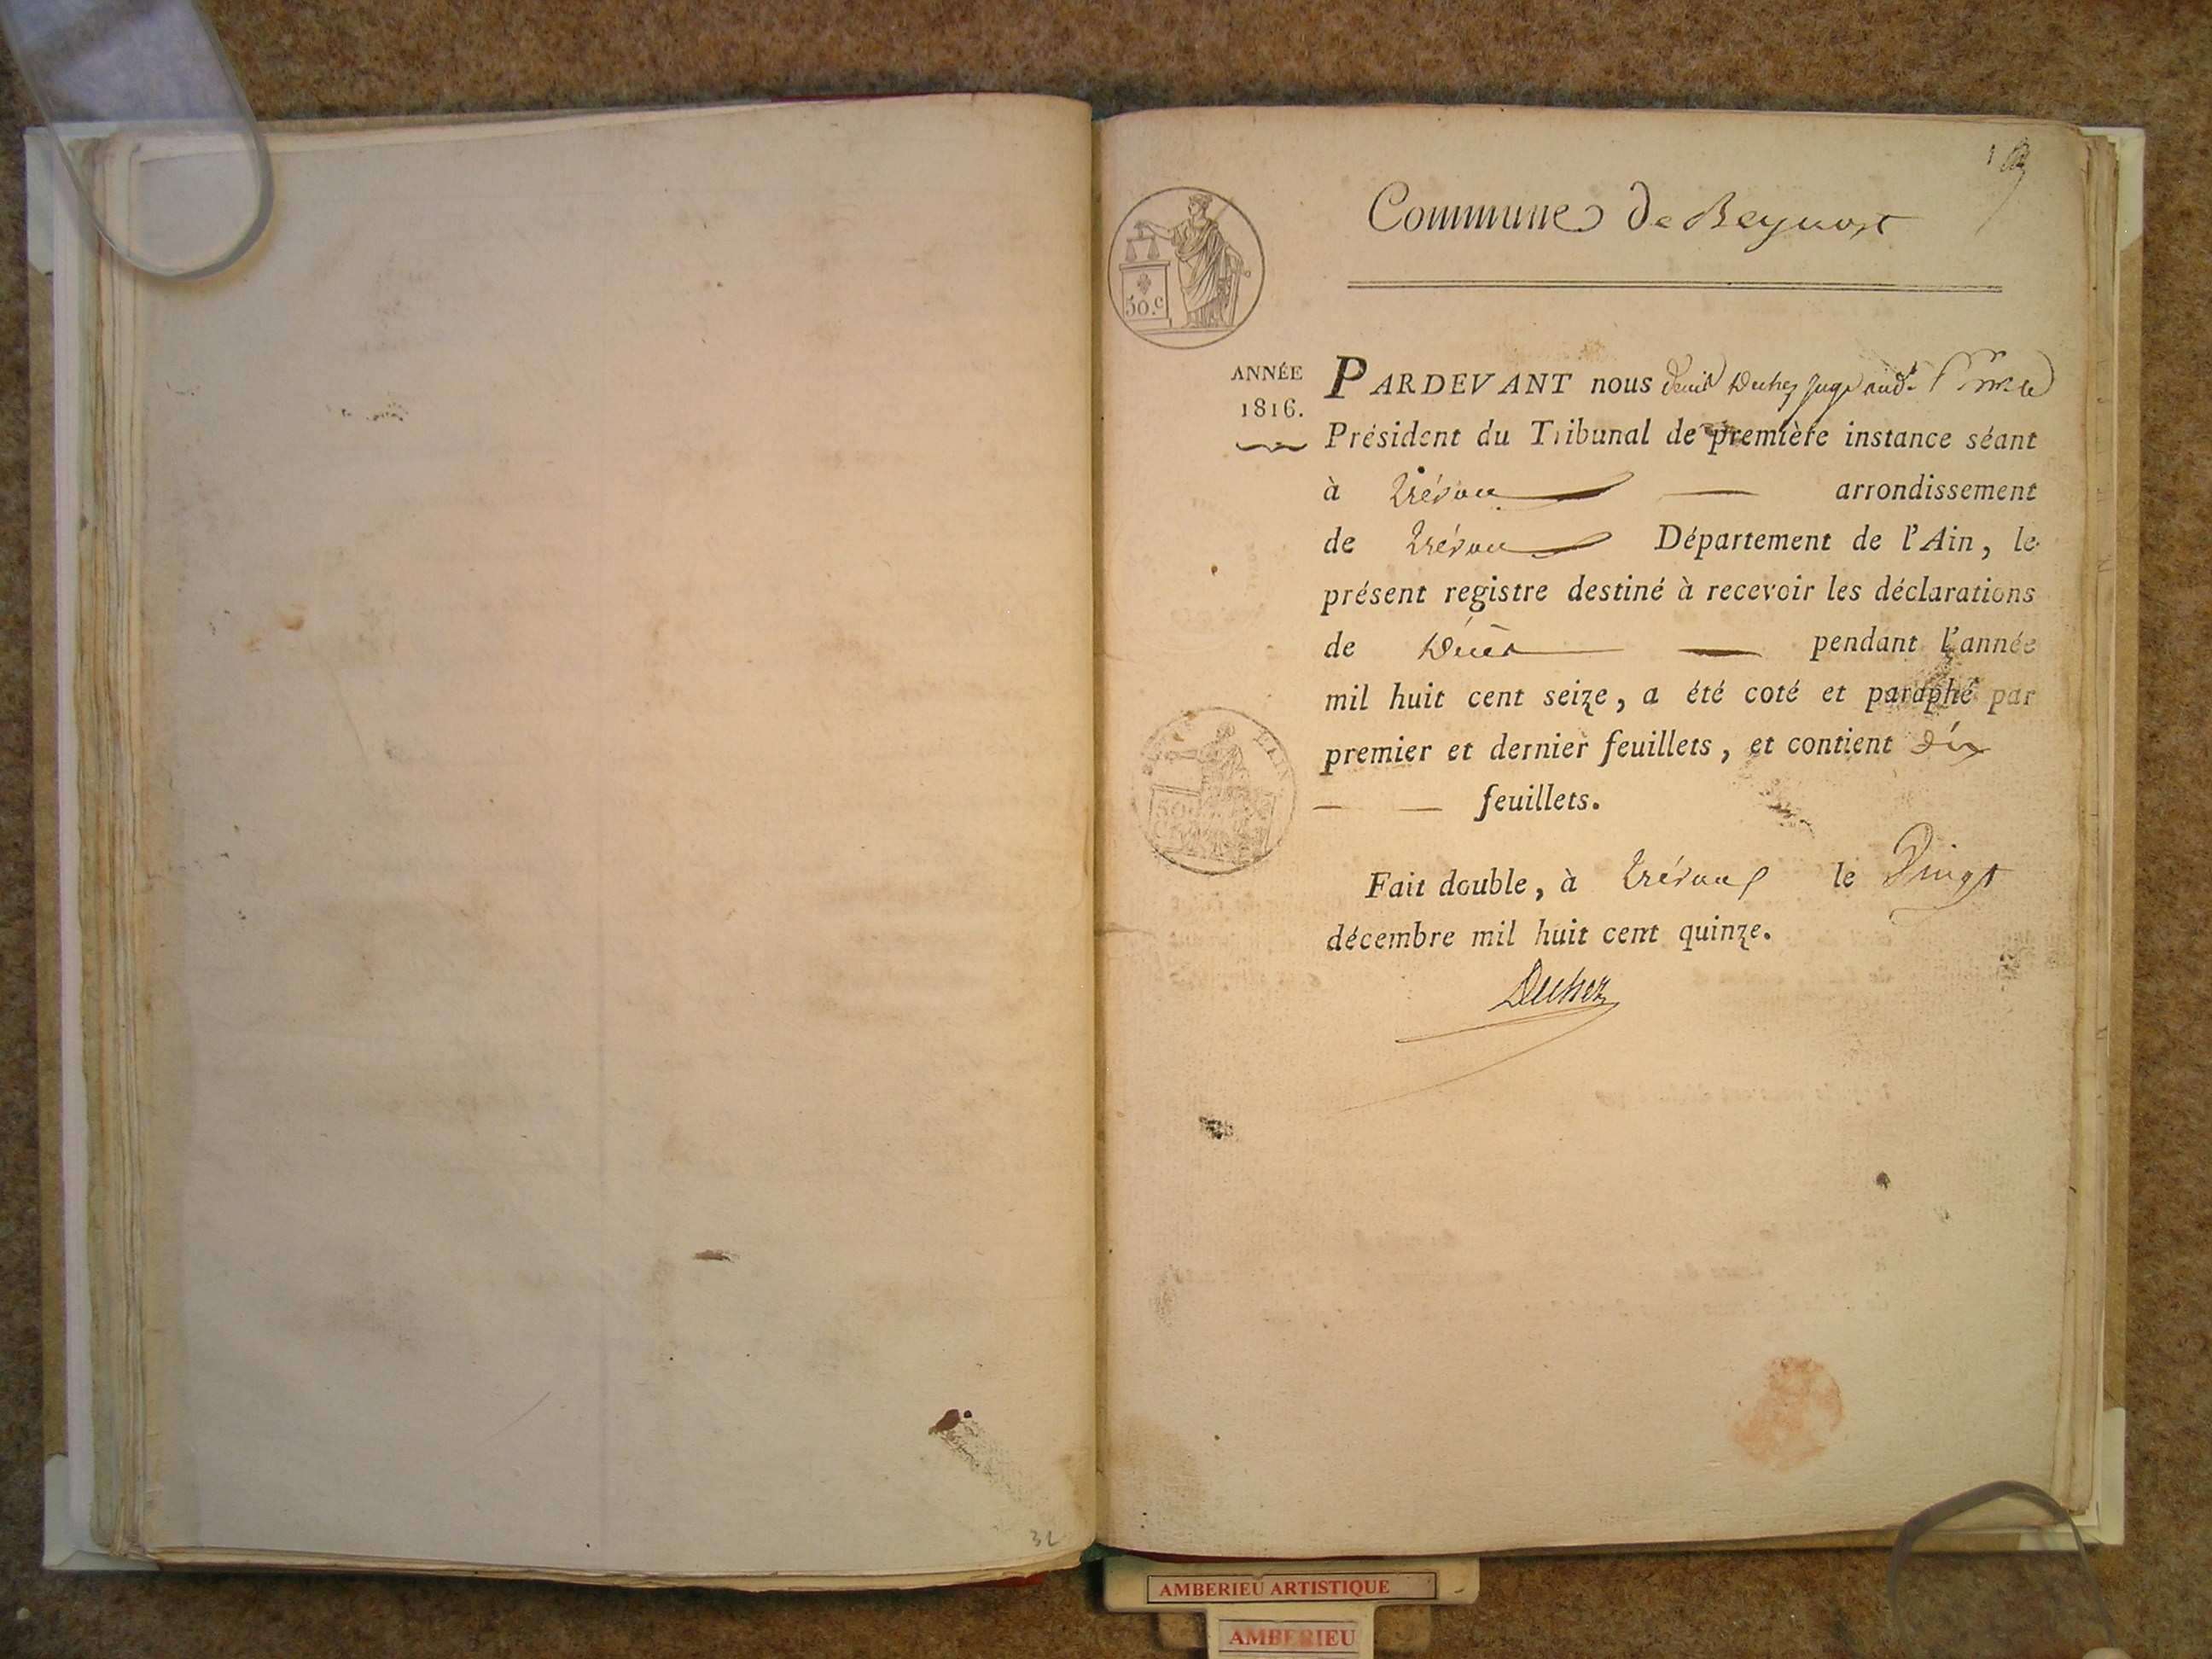 Commune de Beynost
50.c
ANNÉE
1816.
PARDEVANT nous Denis Duchez juge aud.
Président du Tribunal de première instance séant
à Trévoux arrondissement
de Trévoux Département de l'Ain, le
présent registre destiné à recevoir les déclarations
de Décès pendant l'année
mil huit cent seize, a été coté et paraphé par
premier et dernier feuillets, et contient dix
feuillets.
Fait double, à Trévoux le Vingt
décembre mil huit cent quinze.
Duchez
32
AMBERIEU ARTISTIQUE
AMBERIEU